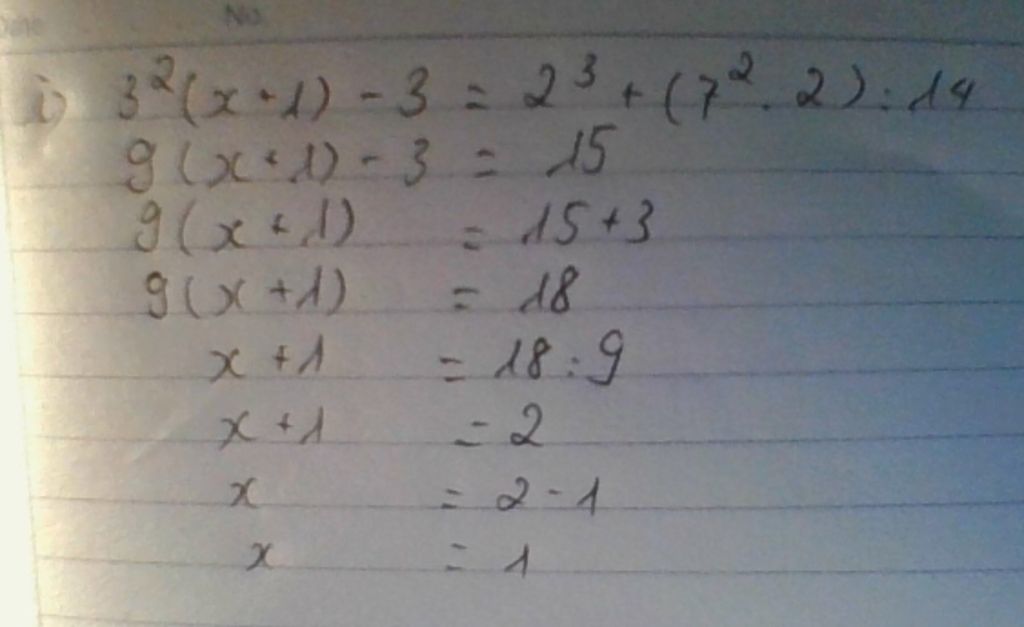 Date No.
i) 3²(x+1) - 3 = 2³ + (7². 2) : 14
9(x+1) - 3 = 15
9(x+1) = 15+3
9(x+1) = 18
x+1 = 18:9
x+1 = 2
x = 2-1
x = 1